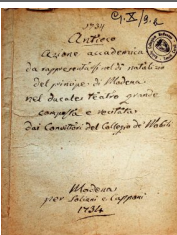 1734
Antioco
Azione accademica
da rappresentarsi nel dì natalizio
del principe di Modena
nel ducale teatro grande
composta e recitata
dai Convittori del Collegio de' Nobili
Modena
per Soliani e Cappani
1734